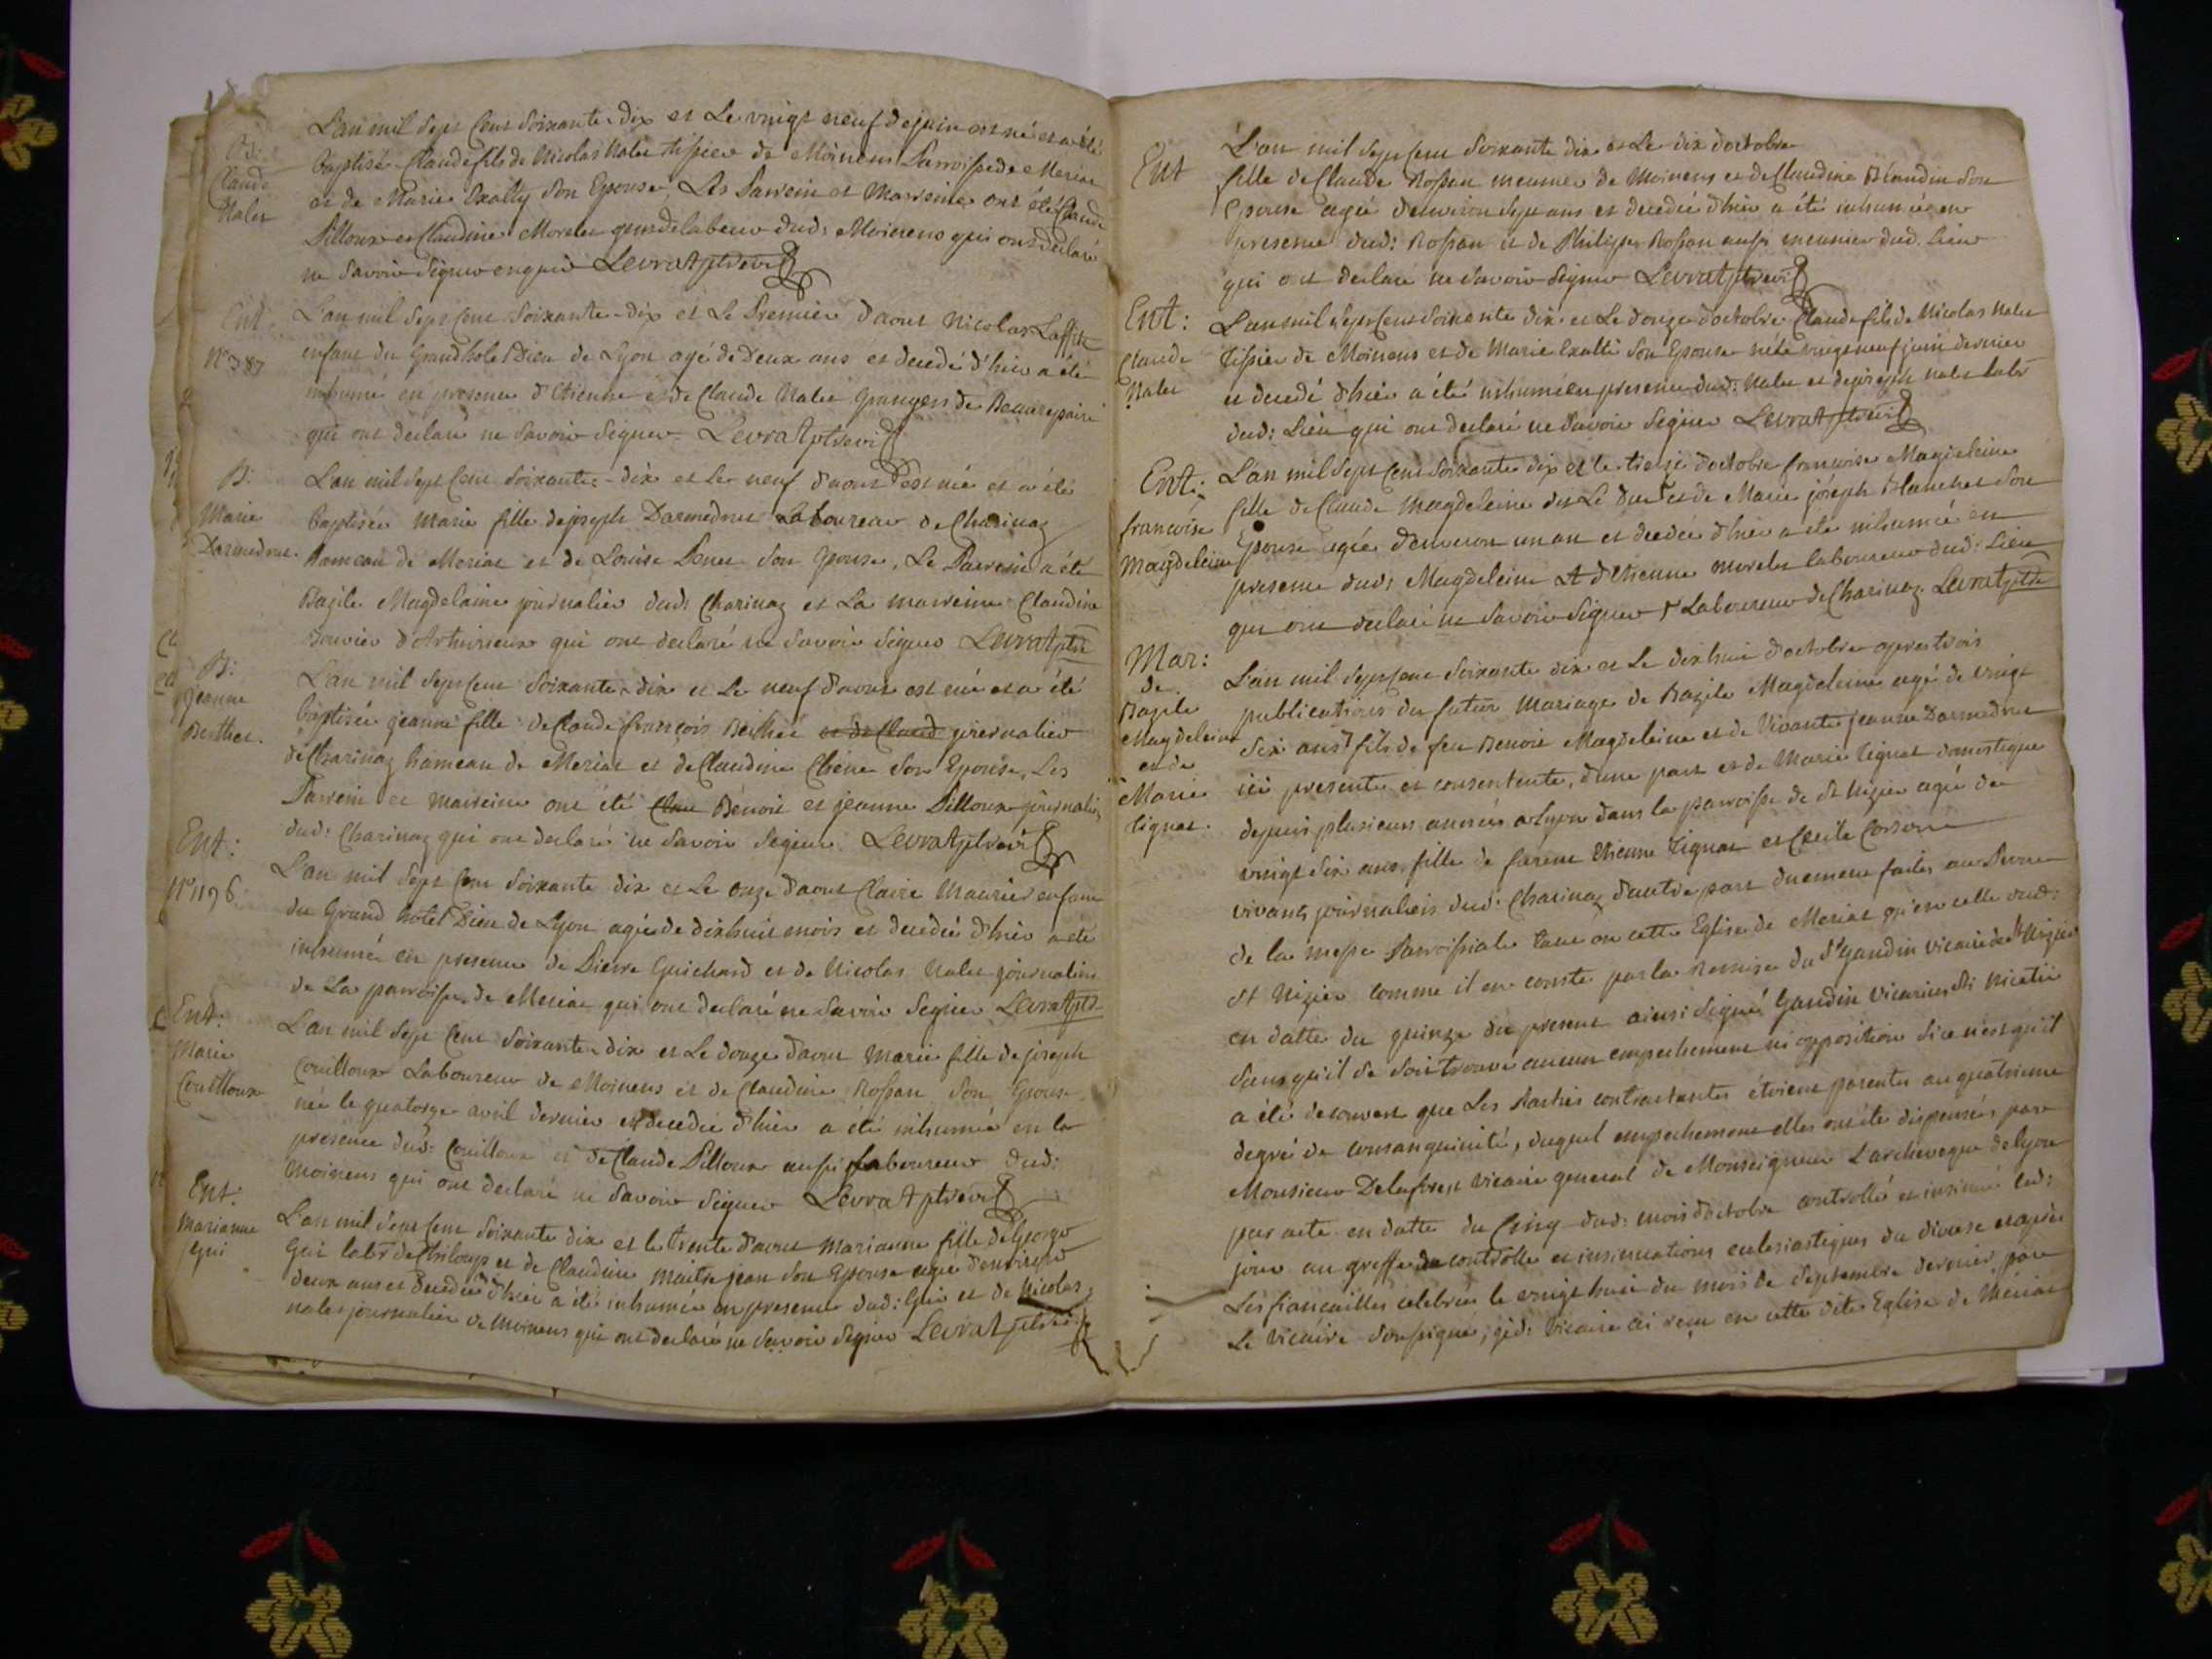 B:
Claude
Nalet
L'an mil Sept Cent Soixante-dix et Le vingt neuf de juin est né et a été
Baptisé Claude fils de Nicolas Nalet tissier de Moinens Parroisse de Meriat
et de Marie Exalty Son Epouse, Les Parrein et Marreine ont été Claude
Pilloux et Claudine Morelet gens de labeur dud: Moinens qui ont declaré
ne Savoir Signer enquis Levrat ptrevic
Ent:
N° 387
L'an mil Sept Cent Soixante-dix et Le Premier d'aout Nicolas Laffitte
enfant du Grand hotel Dieu de Lyon agé de Deux ans et decedé d'hier a été
inhumé en presence d'Etienne et de Claude Nalet Grangers de Beaurepaire
qui ont declaré ne Savoir Signer Levrat ptrevic
B:
Marie
Darmedrut.
L'an mil Sept Cent Soixante-dix et Le neuf d'aout est née et a été
Baptisée Marie fille de joseph Darmedrut Laboureur de Charinaz
hameau de Meriat et de Louise Son Epouse, Le Parrein a été
Bazile Magdelaine journalier dud: Charinaz et La marreine Claudine
Bouvier d'Arturieux qui ont declaré ne Savoir Signer Levrat ptre
B:
jeanne
Berthet.
L'an mil Sept Cent Soixante-dix et Le neuf d'aout est née et a été
baptisée jeanne fille de Claude françois Berthet et de Claud journalier
de Charinaz hameau de Meriat et de Claudine Chêne Son Epouse, Les
Parrein et marreine ont été Clau Benoit et jeanne Pilloux journaliers
dud: Charinaz qui ont declaré ne Savoir Signer Levrat ptrevic
Ent:
N° 1196
L'an mil Sept Cent Soixante dix et Le onze d'aout Claire Maurier enfant
du Grand hôtel Dieu de Lyon agée de dixhuit mois et decedée d'hier a été
inhumée en presence de Pierre Guichard et de Nicolas Nalet journaliers
de La parroisse de Meriat qui ont declaré ne Savoir Signer Levrat ptre
Ent:
Marie
Couilloux
L'an mil Sept Cent Soixante-dix et Le douze d'aout Marie fille de joseph
Couilloux Laboureur de Moinens et de Claudine Rossan Son Epouse
née le quatorze avril dernier et decedée d'hier a été inhumée en la
presence dud: Couilloux et de Claude Pilloux aussi Laboureur dud:
Moinens qui ont declaré ne Savoir Signer Levrat ptrevic
Ent:
Marianne
gui
L'an mil Sept Cent Soixante dix et le trente d'aout Marianne fille de George
Gui et de Claudine Maitrejean Son Epouse agée d'environ
deux ans et decedée d'hier a été inhumée en presence dud: Gui et de Nicolas
nalet journalier de Moinens qui ont declaré ne Savoir Signer Levrat ptrevic
Ent
L'an mil Sept Cent Soixante dix et Le dix d'octobre
fille de Claude Rossan meunier de Moinens et de Claudine Blandin Son
Epouse agée d'environ Sept ans et decedée d'hier a été inhumée en
presence dud: Rossan et de Philippe Rossan aussi meunier dud. Lieu
qui ont declaré ne Savoir Signer Levrat ptrevic
Ent:
Claude
Nalet
L'an mil Sept Cent Soixante dix et Le douze d'octobre Claude fils de Nicolas Nalet
Tissier de Moinens et de Marie Exalti Son Epouse né le vingt neuf juin dernier
et decedé d'hier a été inhumé en presence dud: Nalet et de joseph nalet labr
dud: Lieu qui ont declaré ne Savoir Signer Levrat ptrevic
Ent:
francoise
Magdeleine
L'an mil Sept Cent Soixante dix et le treize d'octobre francoise Magdeleine
fille de Claude Magdeleine et de Marie joseph Blanchet Son
Epouse agée d'environ un an et decedée d'hier a été inhumée en
presence dud: Magdeleine et d'Etienne morelet laboureur dud: Lieu
qui ont declaré ne Savoir Signer Laboureur de Charinaz. Levrat ptre
Mar:
de
Bazile
Magdeleine
et de
Marie
tignat.
L'an mil Sept Cent Soixante dix et Le dixhuit d'octobre apres trois
publications du futur Mariage de Bazile Magdeleine agé de vingt
Six ans fils de feu Benoit Magdeleine et de Vivante jeanne Darmedrut
ici presente et consentente, d'une part et de Marie Tignat domestique
depuis plusieurs années a Lyon dans la parroisse de St Nizier agée de
vingt Six ans fille de Etienne Tignat et Cecile
vivants journaliers dud: Charinaz d'autre part duement faites au Prone
de la messe Parroissiale tant en cette Eglise de Meriat qu'en celle dud:
St Nizier comme il en conste par la Remise du Sr Gandin vicaire de St Nizier
en datte du quinze du present ainsi Signé Gandin vicarius Sti Nicetii
Sans qu'il Se Soit trouvé aucun empechement ni opposition Si ce n'est qu'il
a été decouvert que Les Parties contractantes étoient parentes au quatrieme
degré de consanguinité, duquel empechement elles ont été dispensées par
Monsieur Delaforest vicaire general de Monseigneur L'archeveque de Lyon
par acte en datte du Cinq dud: mois d'octobre controllé et insinué led:
jour au greffe du controlle et insinuations eclesiastiques du diocese et après
Les fiancailles celebrées le vingt huit du mois de Septembre dernier, par
Le Vicaire Soussigné, vicaire ai reçu en cette dite Eglise de Mériat